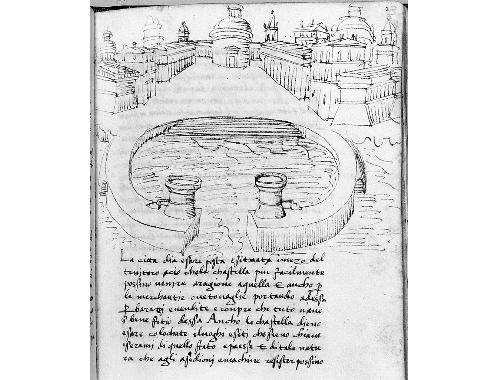 La citta dia essere posta e situata i mezo del
teritoro acio chele chastella piu facilmente
possino venire aragione aquella E ancho p
le merchantie vetovaglie portando adessa
p baratti e vendite e compre che tuto nave
p bene sito dessa Ancho le chastella dieno
essere colochate iluoghi e siti che sieno chiave
e serami di quello stato e paese E ditale natu
ra che agli asedioni e machine resister possino